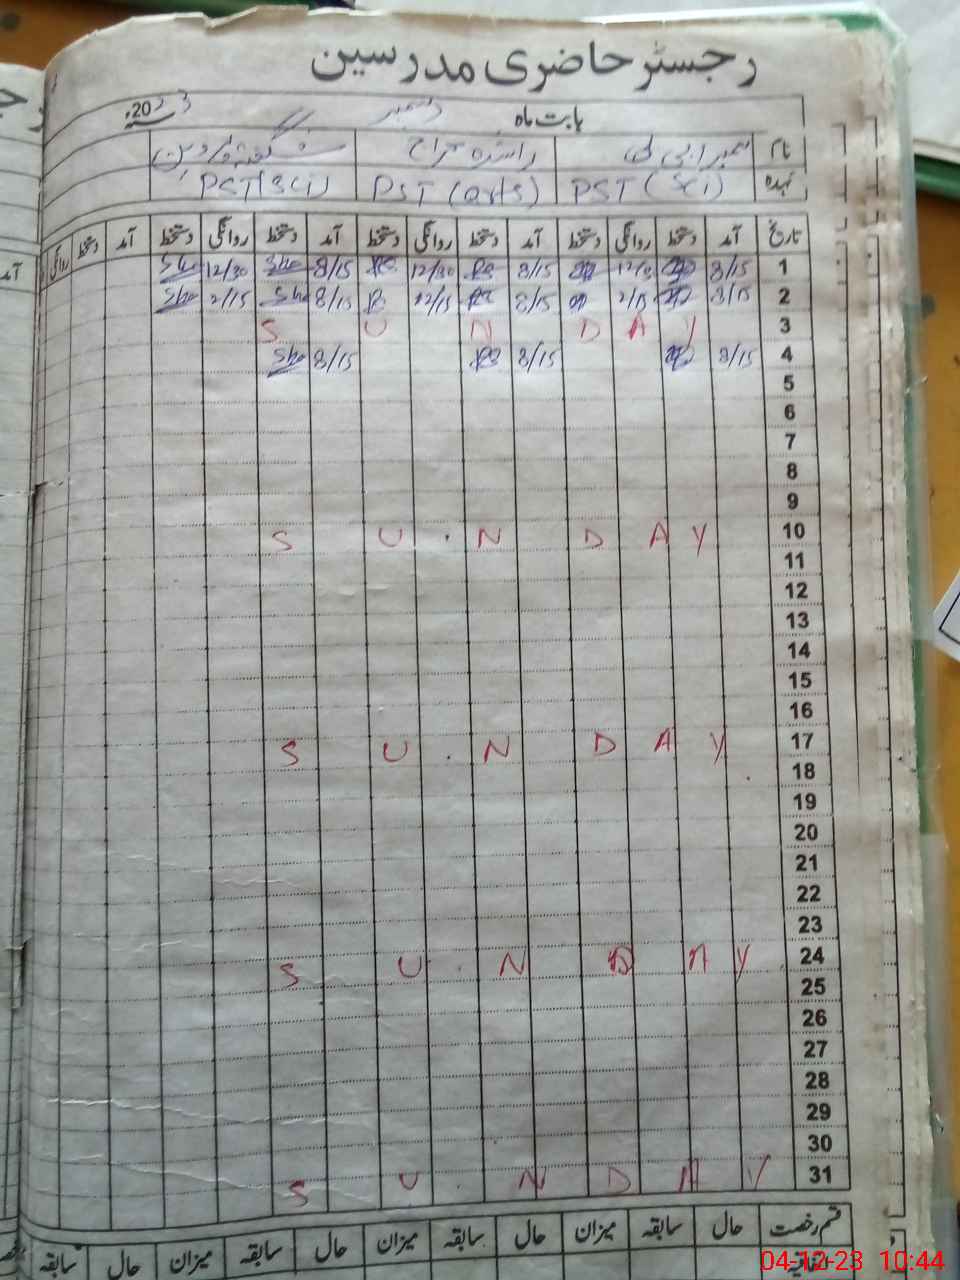 رجسٹر حاضری مدرسین
بابت ماہ دسمبر 2023ء
نام
عہدہ PST (Sci) PST (arts) PST (Sci)
تاریخ آمد دستخط روانگی دستخط آمد دستخط روانگی دستخط آمد دستخط روانگی دستخط آمد دستخط روانگی
1 8/15 8/15 12/30 8/15 Sha 12/30 Sha
2 8/15 2/15 8/15 12/15 8/15 Sha 2/15 Sha
3 S U N D A Y
4 8/15 8/15 8/15 Sha
5
6
7
8
9
10 S U N D A Y
11
12
13
14
15
16
17 S U N D A Y
18
19
20
21
22
23
24 S U N D A Y
25
26
27
28
29
30
31 S U N D A Y
قسم رخصت حال سابقہ میزان حال سابقہ میزان حال سابقہ
اتفاقیہ حال سابقہ میزان حال سابقہ
04-12-23 10:44